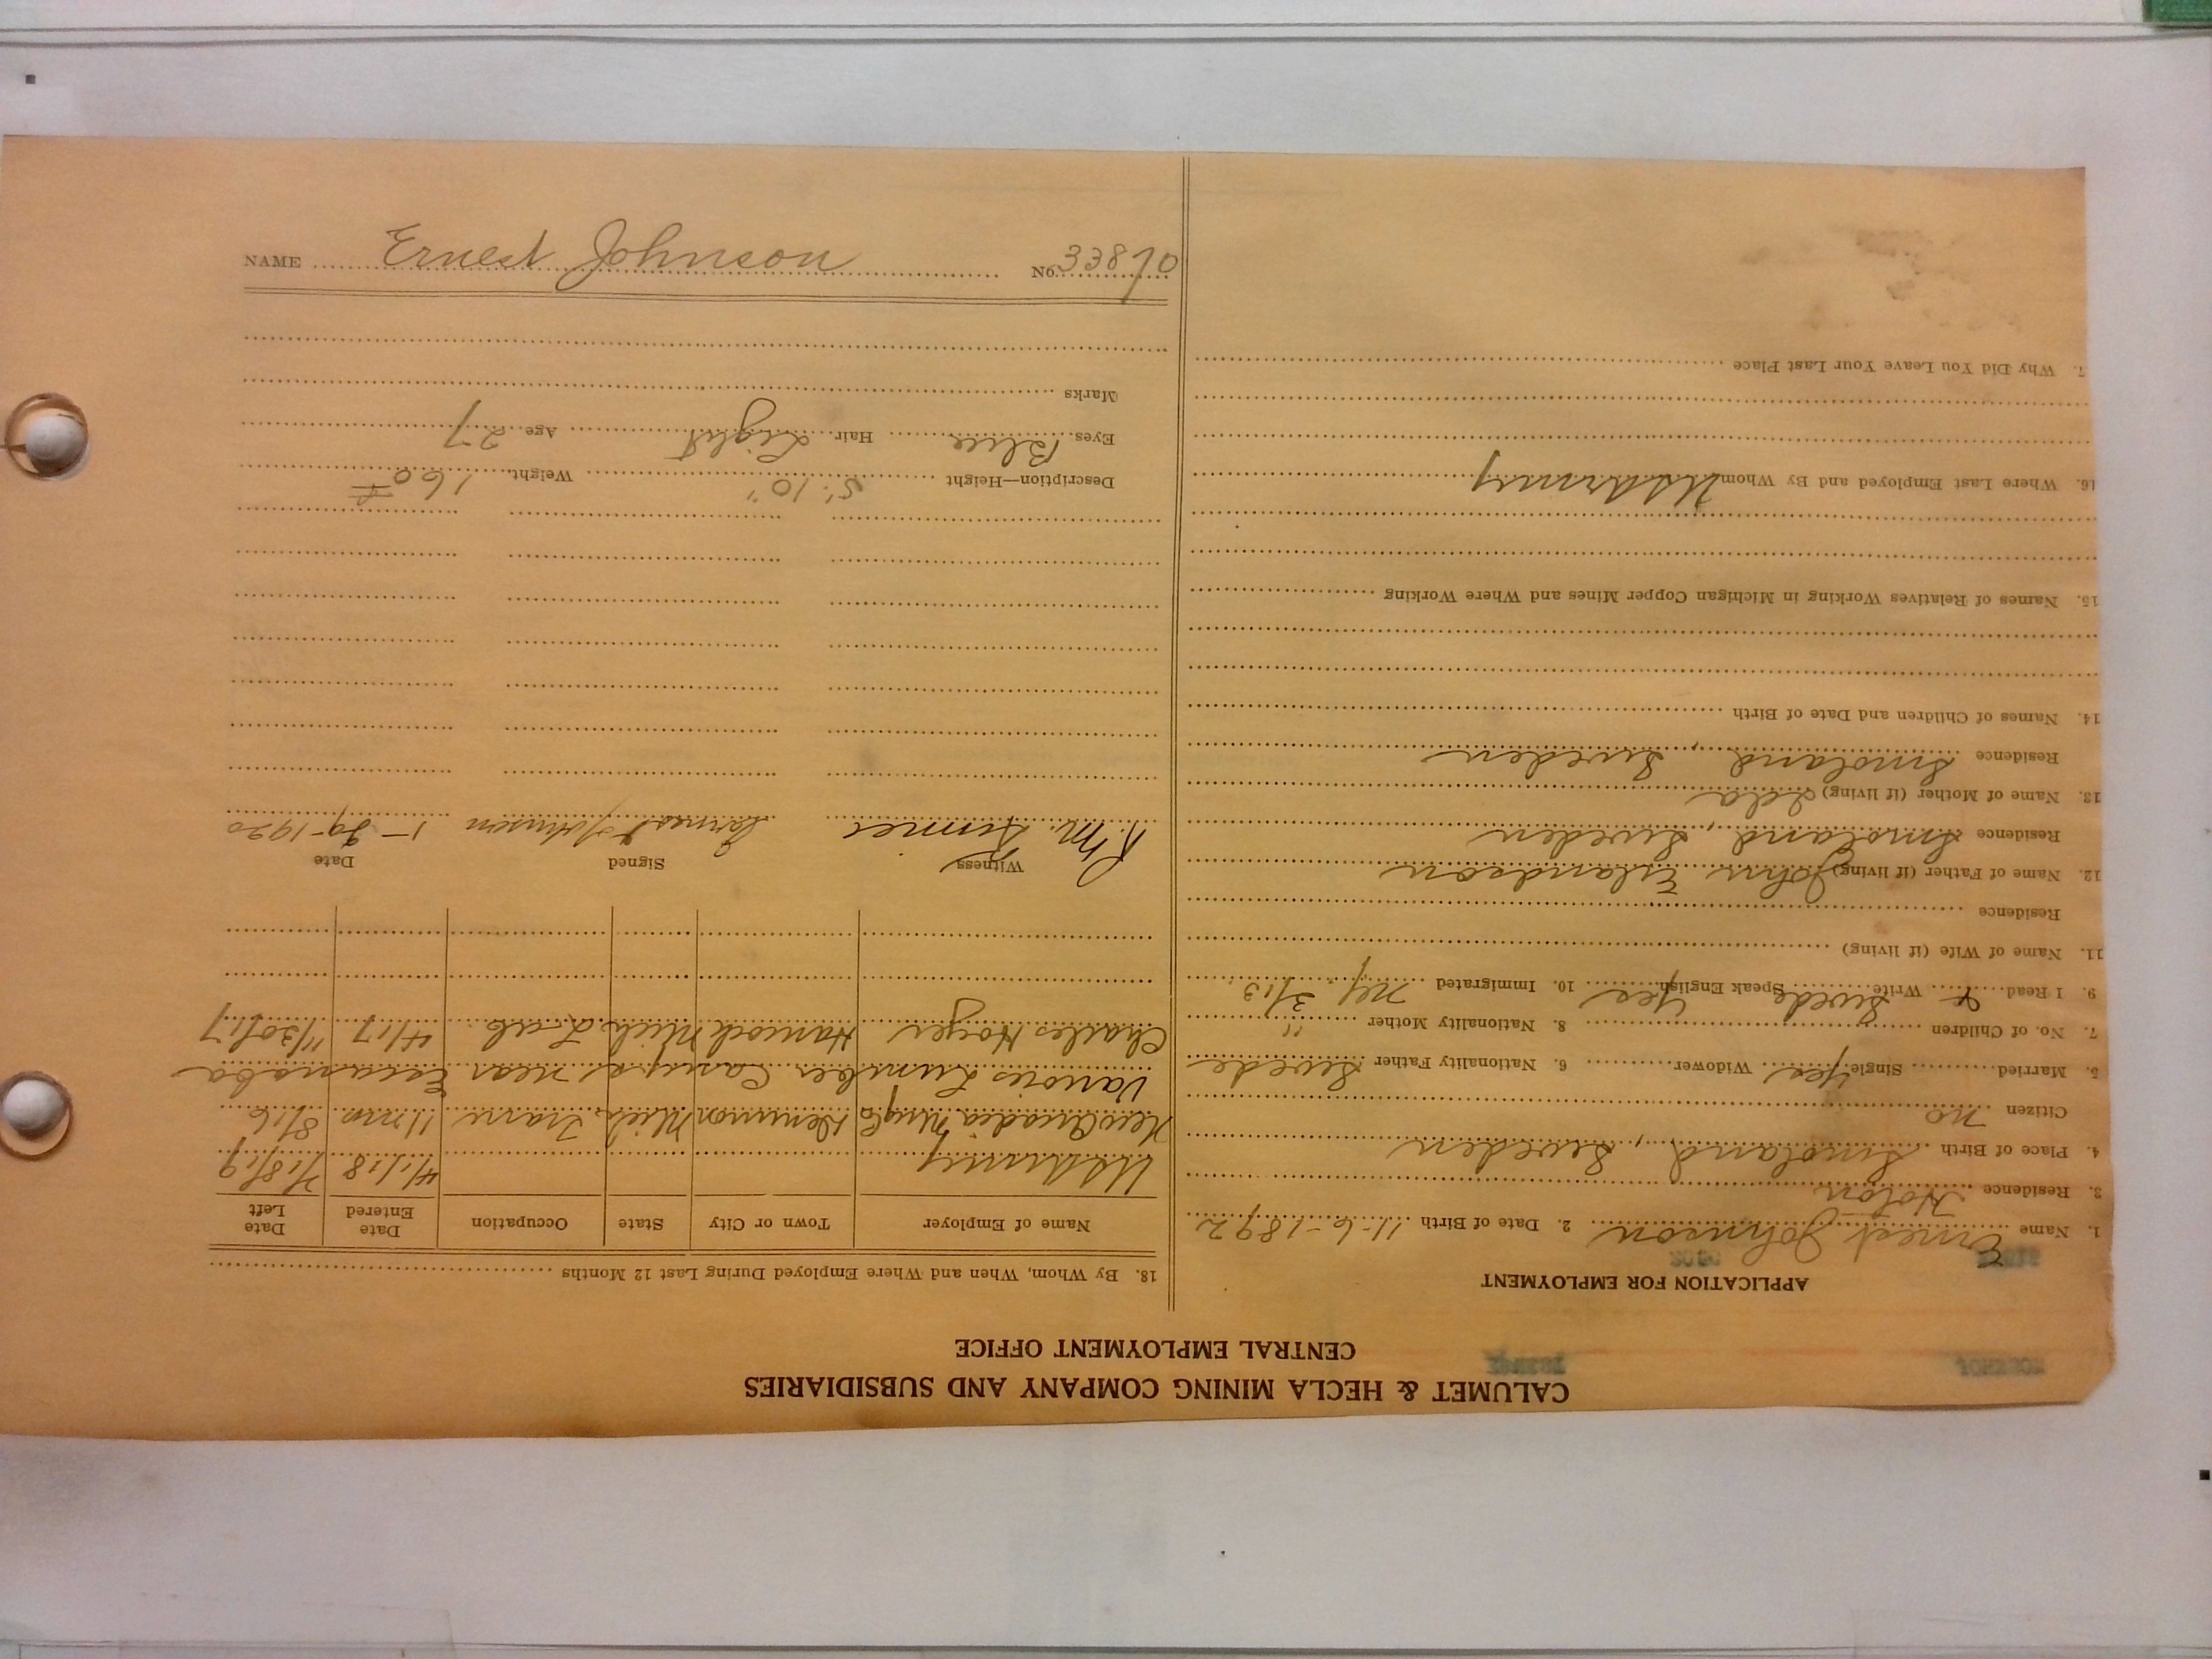 CALUMET & HECLA MINING COMPANY AND SUBSIDIARIES
CENTRAL EMPLOYMENT OFFICE
APPLICATION FOR EMPLOYMENT
1. Name Ernest Johnson 2. Date of Birth 11-6-1892
3. Residence Hoton
4. Place of Birth Smoland, Sweden
Citizen no
5. Married Single yes Widower 6. Nationality Father Swede
7. No. of Children 8. Nationality Mother "
9. I Read & Write Swede Speak English yes 10. Immigrated NY 3/13
11. Name of Wife (if living)
Residence
12. Name of Father (if living) John Erlandson
Residence Smoland, Sweden
13. Name of Mother (if living) Ida
Residence Smoland, Sweden
14. Names of Children and Date of Birth
15. Names of Relatives Working in Michigan Copper Mines and Where Working
16. Where Last Employed and By Whom US Army
7. Why Did You Leave Your Last Place
18. By Whom, When and Where Employed During Last 12 Months
Name of Employer Town or City State Occupation Date Entered Date Left
US Army 4/1/18 7/18/19
New Arcadia Mng Co Mich Tram 11 mo. 8/16
Various Lumber Camps near Escanaba
Charles Hoyer Hancock Mich Lab. 4/17 11/30/17
Witness Signed Date
R M. Ernest Johnson 1-29-1920
Description—Height 5' 10" Weight 160 #
Eyes Blue Hair Light Age 27
Marks
NAME Ernest Johnson No. 33870